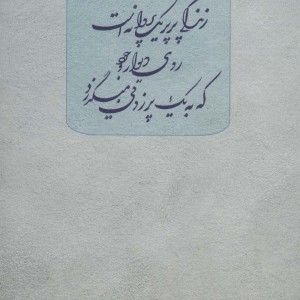 زندگی پر پر یک پروانه است
روی دیوار وجود
که به یک پر زدنی میگذرد